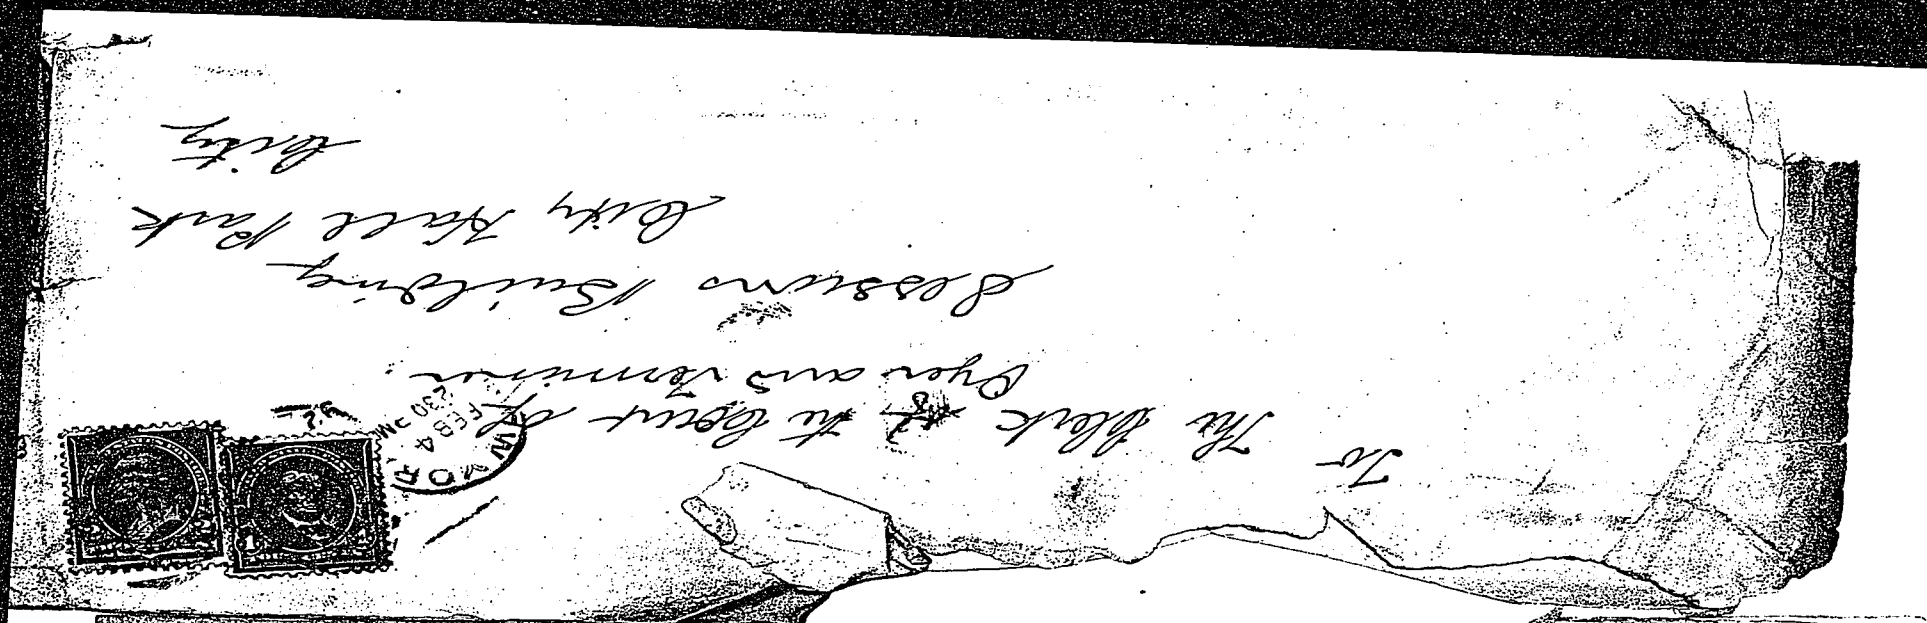 To
The Clerk of the Court of
Oyer and Terminer.
Sessions Building
City Hall Park
City
EW YOR
FEB 4
230 PM